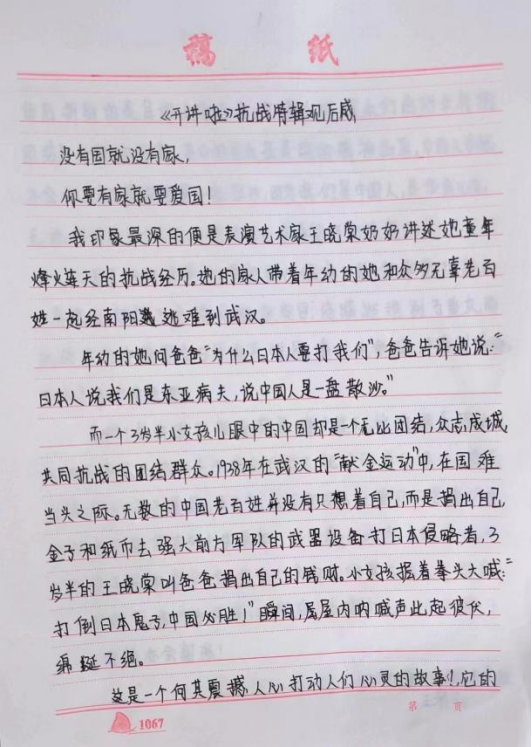 稿 纸
《开讲啦》抗战特辑观后感
没有国就没有家，
你要有家就要爱国！
我印象最深的便是表演艺术家王晓棠奶奶讲述她童年
烽火连天的抗战经历。她的家人带着年幼的她和众多无辜老百
姓一起经南阳逃难到武汉。
年幼的她问爸爸“为什么日本人要打我们”，爸爸告诉她说：“
日本人说我们是东亚病夫，说中国人是一盘散沙。”
而一个3岁半小女孩儿眼中的中国却是一个无比团结，众志成城
共同抗战的团结群众。1938年在武汉的“献金运动”中，在国难
当头之际。无数的中国老百姓并没有只想着自己，而是捐出自己
金子和纸币去强大前方军队的武器设备打日本侵略者，3
岁半的王晓棠叫爸爸捐出自己的钱财。小女孩握着拳头大喊：“
打倒日本鬼子，中国必胜！”瞬间，屋内呐喊声此起彼伏，
绵延不绝。
这是一个何其震撼人心打动人们心灵的故事！，它的
1067
第 页